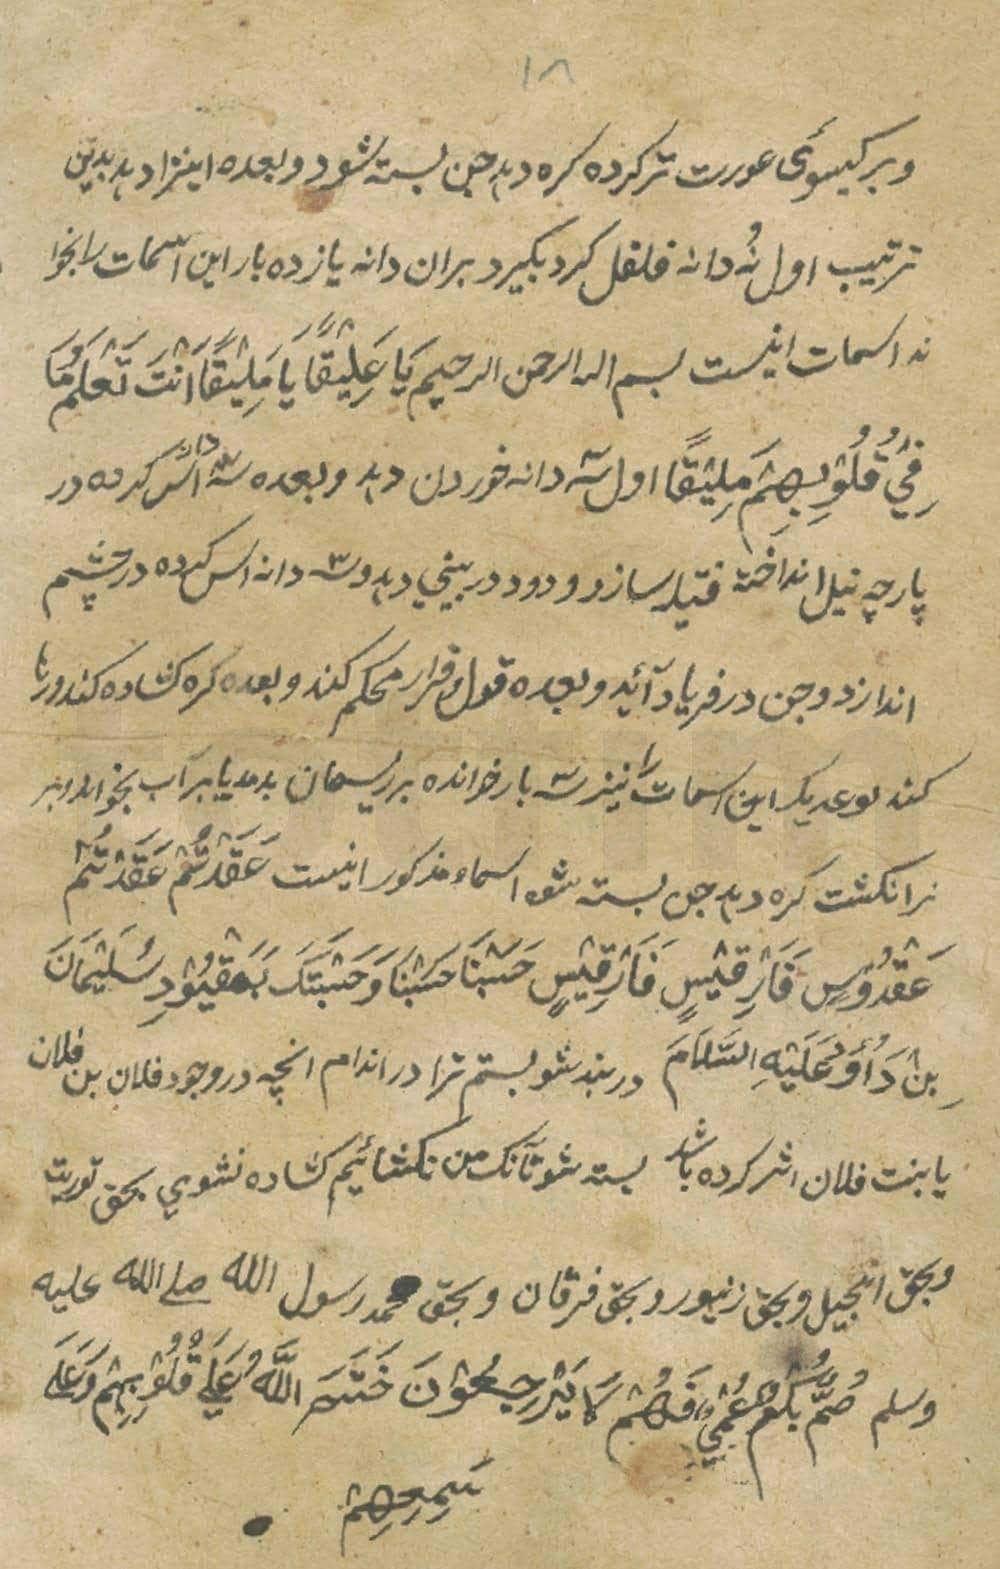 ١٨
و بر کیسوئی عورت تر کرده کره دهد جن بسته شود و بعده اینرا دهد بدین
ترتیب اول نُه دانه فلفل کرد بکیرد بران دانه یازده بار این اسمات را بخوا
ند اسمات اینست بسم الله الرحمن الرحیم یَا عَلِیْقًا یَا مَلِیْقًا اَنْتَ تَعْلَمُ مَا
فِیْ قُلُوْبِهِمْ مَلِیْقًا اول سه دانه خوردن دهد و بعده سه دانه اس کرده در
پارچه نیل انداخته فتیله سازد و دود در بیني دهد و سه دانه اس کرده در چشم
اندازد و جن در فریاد آئید و بعده قول و قرار محکم کند و بعده کره کشاده کند و رها
کند نوعدیکر این اسمات را نیز سه بار خوانده بر ریسمان بدمد یا بر آب بخواند و بر
نر انکشت کره دهد جن بسته شود اسماء مذکور اینست عَقَدْتُمْ عَقَدْتُمْ
عَقْدُوْسِ فَارِقِیْسٍ فَارِقِیْسٍ حَسْبُنَا حَسْبُنَا وَحَسْبَتَکَ بَعقِیُوْدِ سُلَیْمَانَ
بِنْ دَاُوٗدَ عَلَیْهِ السَّلَامَ در بند شو بستم ترا در اندام انچه در وجود فلان بن فلان
یا بنت فلان اثر کرده باشد بسته شو تا آنک من نکشائیم کشاده نشوي بحق توریت
و بحق انجیل و بحق زنبور و بحق فرقان و بحق محمد رسول الله صلے الله علیه
وسلم صُمٌّ بُکْمٌ عُمْيٌ فَهُمْ لَا یَرْجِعُوْنَ خَتَمَ اللّٰهُ عَلٰے قُلُوْبِهِمْ وَعَلٰے
سَمِعِهِمْ